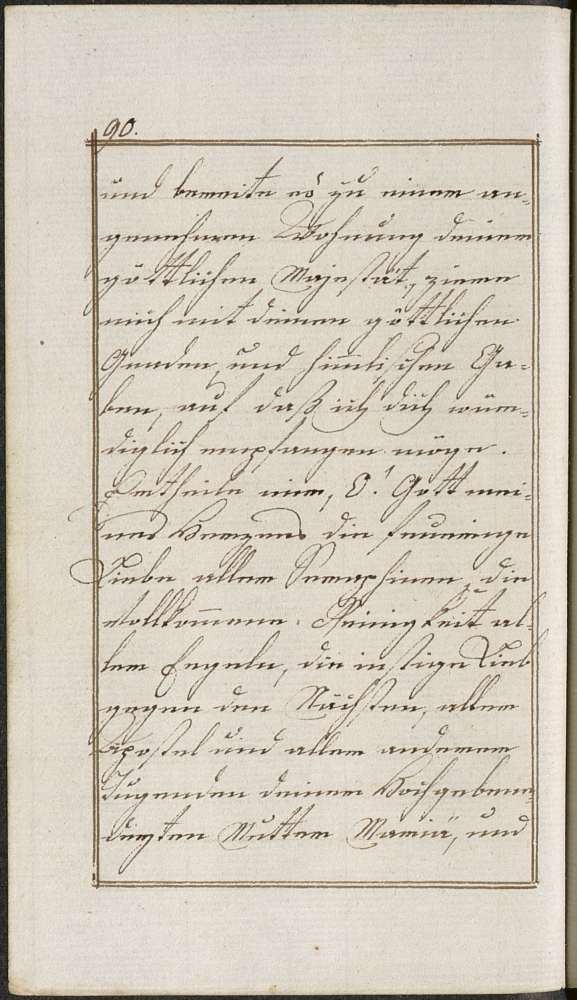 90.
und bereite es zu einer an-
genehmen Wohnung deiner
göttlichen Majestät, ziere
mich mit deinen göttlichen
Gnaden, und himlischen Ga-
ben, auf daß ich dich wür-
diglich empfangen möge.
Ertheile mir, O! Gott mei-
nes Herzens die feurige
Liebe aller Seraphinen, die
vollkomene Reinigkeit al-
ler Engeln, die instige Lieb
gegen den Nächsten, aller
Apostel und aller anderen
Tugenden deiner Hochgebene-
deyten Mutter Mariä, und